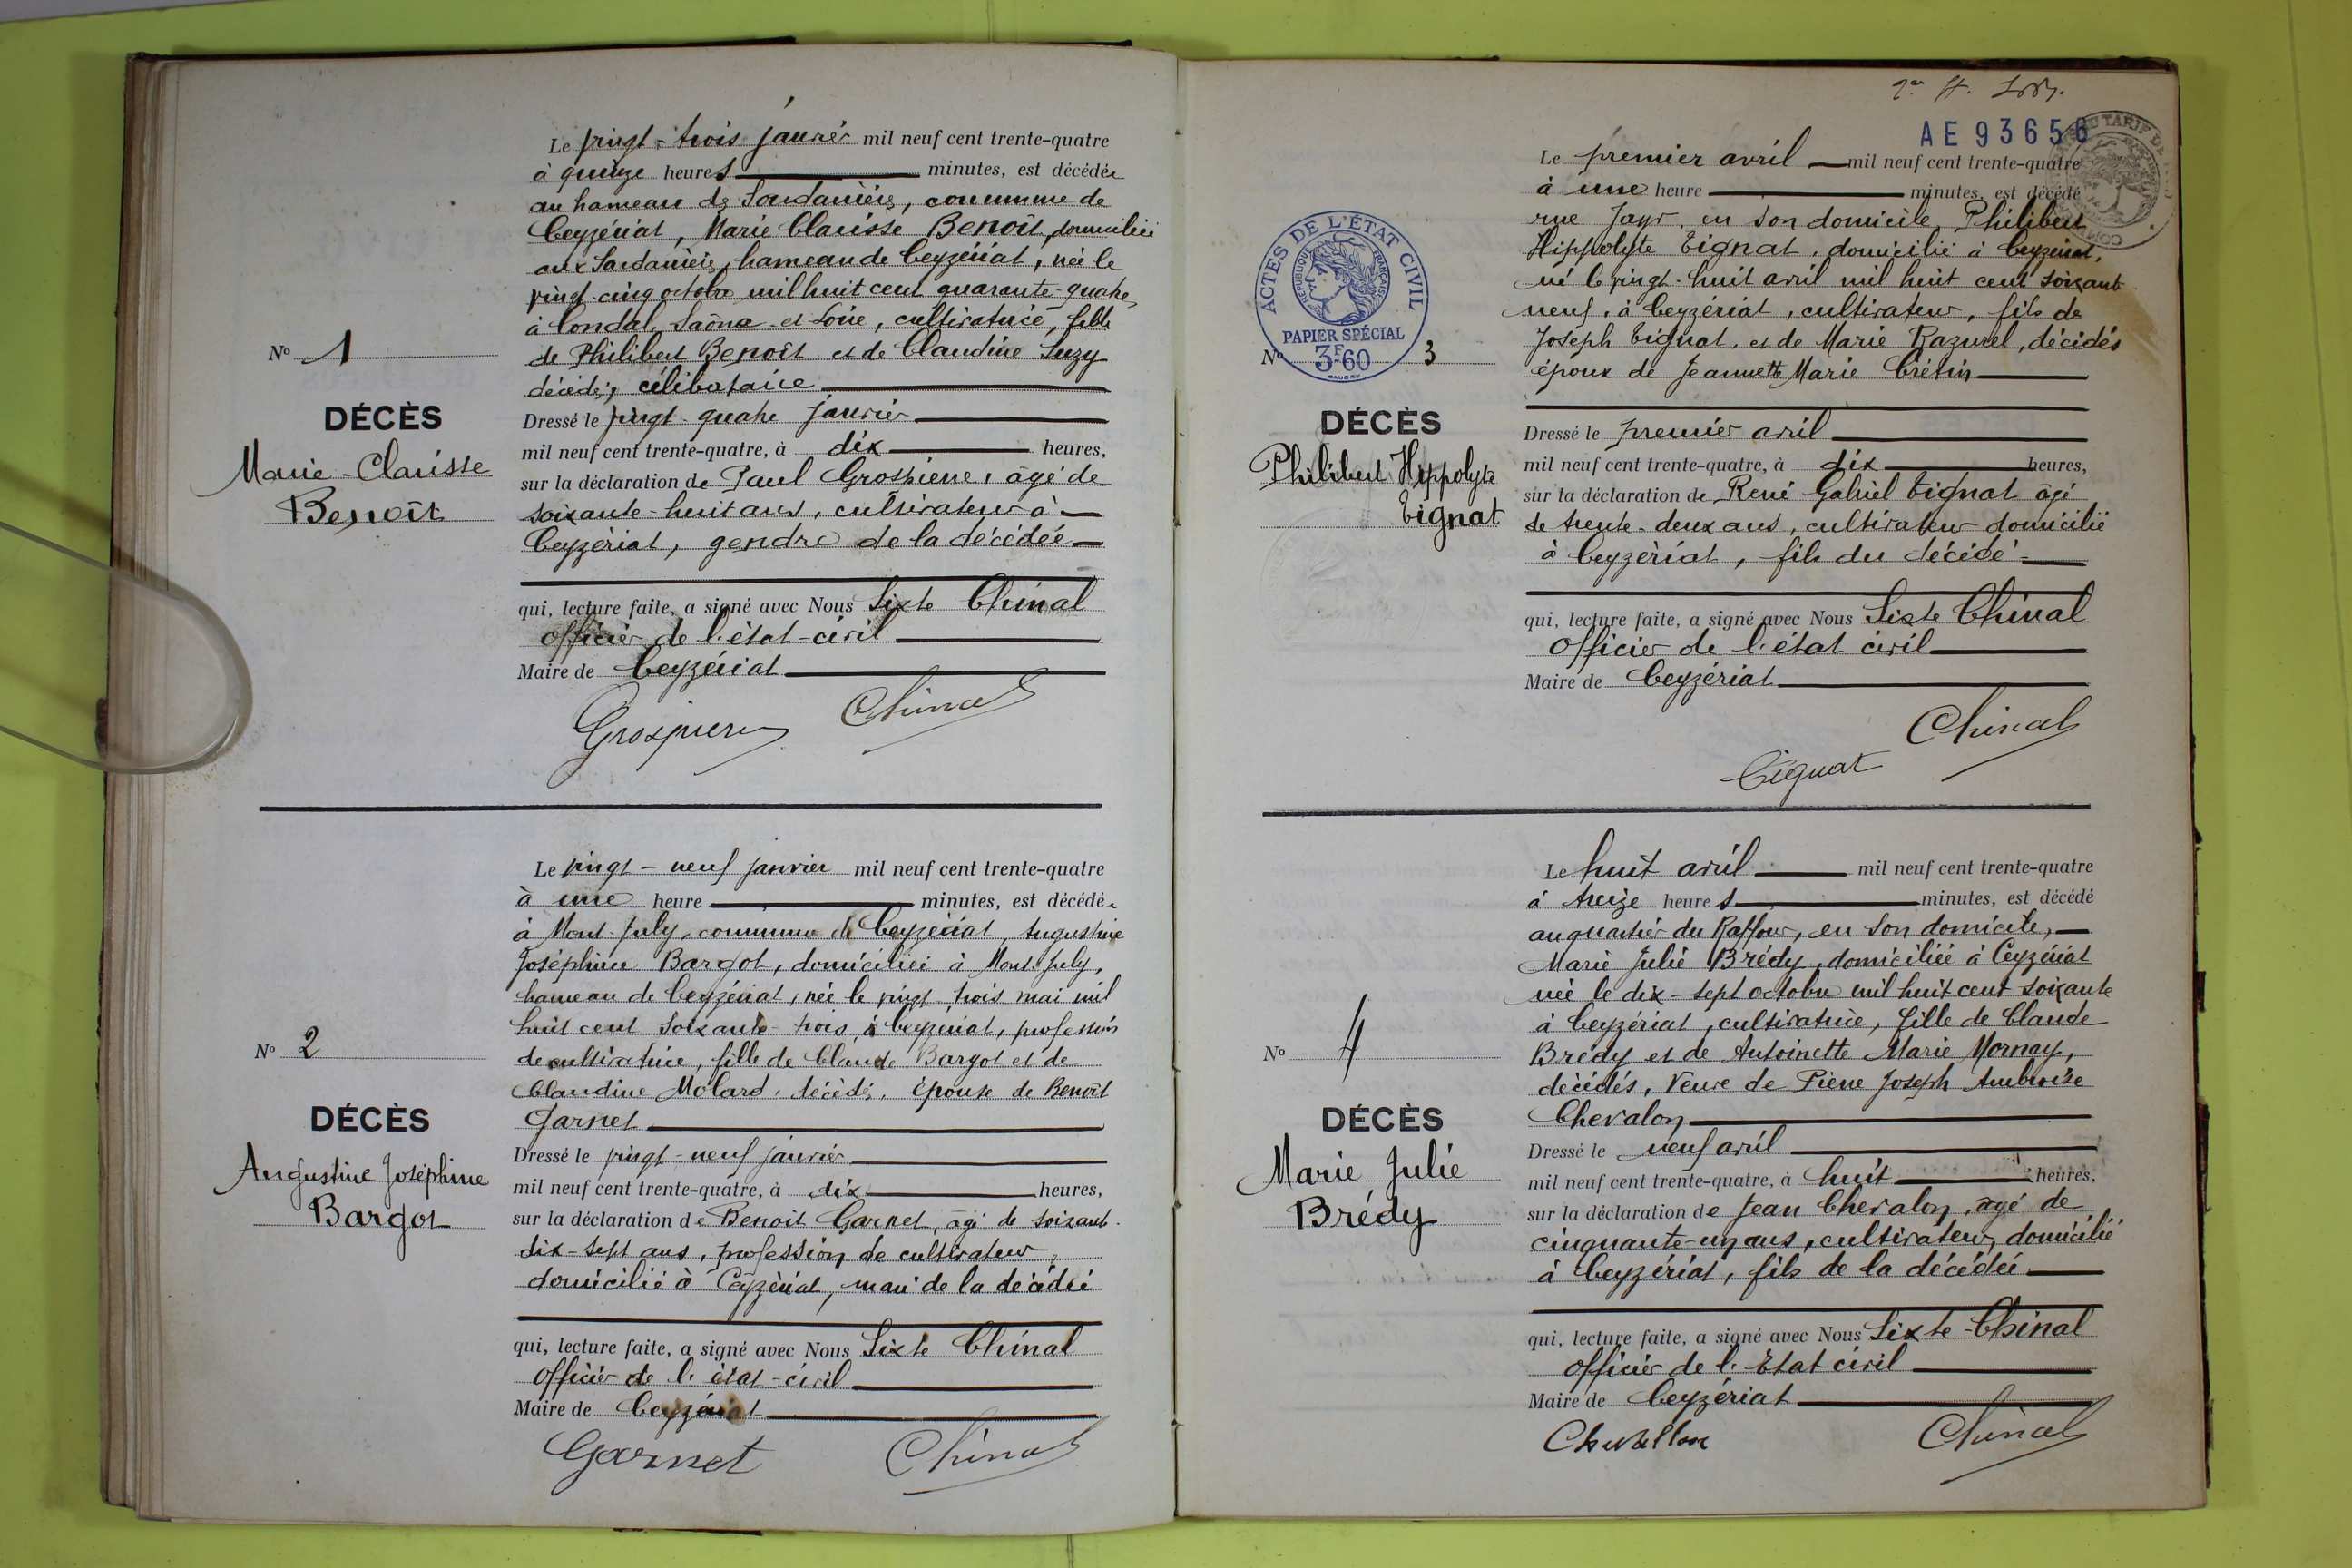 Le vingt-trois janvier mil neuf cent trente-quatre
à quinze heures minutes, est décédée
au hameau des Soudanières, commune de
Ceyzériat, Marie Clarisse Benoît, domiciliée
aux Soudanières, hameau de Ceyzériat, née le
vingt-cinq octobre mil huit cent quarante-quatre,
à Condal, Saône-et-Loire, cultivatrice, fille
de Philibert Benoît et de Claudine Suzy
décédés, célibataire
Dressé le vingt-quatre janvier
mil neuf cent trente-quatre, à dix heures,
sur la déclaration de Paul Grospierre, âgé de
soixante-huit ans, cultivateur à
Ceyzériat, gendre de la décédée
qui, lecture faite, a signé avec Nous Sixte Chinal
officier de l'état-civil
Maire de Ceyzériat
Grospierre Chinal
No 1
DÉCÈS
Marie-Clarisse
Benoît
Le vingt-neuf janvier mil neuf cent trente-quatre
à une heure minutes, est décédée
à Mont-July, commune de Ceyzériat, Augustine
Joséphine Bargot, domiciliée à Mont-July,
hameau de Ceyzériat, née le vingt trois mai mil
huit cent soixante-trois, à Ceyzériat, profession
de cultivatrice, fille de Claude Bargot et de
Claudine Molard, décédés, épouse de Benoît
Garnet
Dressé le vingt-neuf janvier
mil neuf cent trente-quatre, à dix heures,
sur la déclaration de Benoît Garnet, âgé de soixante
dix-sept ans, profession de cultivateur,
domicilié à Ceyzériat, mari de la décédée
qui, lecture faite, a signé avec Nous Sixte Chinal
officier de l'état-civil
Maire de Ceyzériat
Garnet Chinal
No 2
DÉCÈS
Augustine Joséphine
Bargot
AE 93656
Le premier avril mil neuf cent trente-quatre
à une heure minutes, est décédé
rue Jayr, en son domicile, Philibert
Hippolyte Tignat, domicilié à Ceyzériat,
né le vingt-huit avril mil huit cent soixante
neuf, à Ceyzériat, cultivateur, fils de
Joseph Tignat, et de Marie Razurel, décédés
époux de Jeannette Marie Crétin
Dressé le premier avril
mil neuf cent trente-quatre, à dix heures,
sur la déclaration de René Gabriel Tignat âgé
de trente-deux ans, cultivateur domicilié
à Ceyzériat, fils du décédé
qui, lecture faite, a signé avec Nous Sixte Chinal
Officier de l'état civil
Maire de Ceyzériat
Chinal
Tignat
ACTES DE L'ÉTAT CIVIL
RÉPUBLIQUE FRANÇAISE
PAPIER SPÉCIAL
3F60
No 3
DÉCÈS
Philibert Hippolyte
Tignat
Le huit avril mil neuf cent trente-quatre
à treize heures minutes, est décédé
au quartier du Raffour, en son domicile,
Marie Julie Brédy, domiciliée à Ceyzériat
née le dix-sept octobre mil huit cent soixante
à Ceyzériat, cultivatrice, fille de Claude
Brédy et de Antoinette Marie Mornay,
décédés, veuve de Pierre Joseph Ambroise
Chevalon
Dressé le neuf avril
mil neuf cent trente-quatre, à huit heures,
sur la déclaration de Jean Chevalon, âgé de
cinquante-un ans, cultivateur, domicilié
à Ceyzériat, fils de la décédée
qui, lecture faite, a signé avec Nous Sixte Chinal
officier de l'Etat civil
Maire de Ceyzériat
Chevallon Chinal
No 4
DÉCÈS
Marie Julie
Brédy